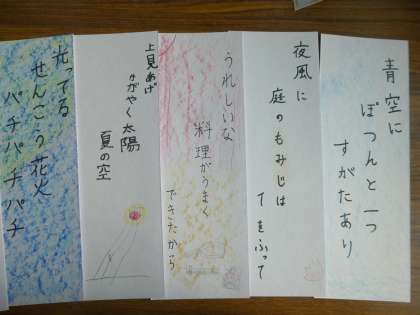 青空に
ぽつんと一つ
すがたあり
夜風に
庭のもみじは
てをふって
うれしいな
料理がうまく
できたから
上見あげ
かがやく太陽
夏の空
光ってる
せんこう花火
パチパチパチ